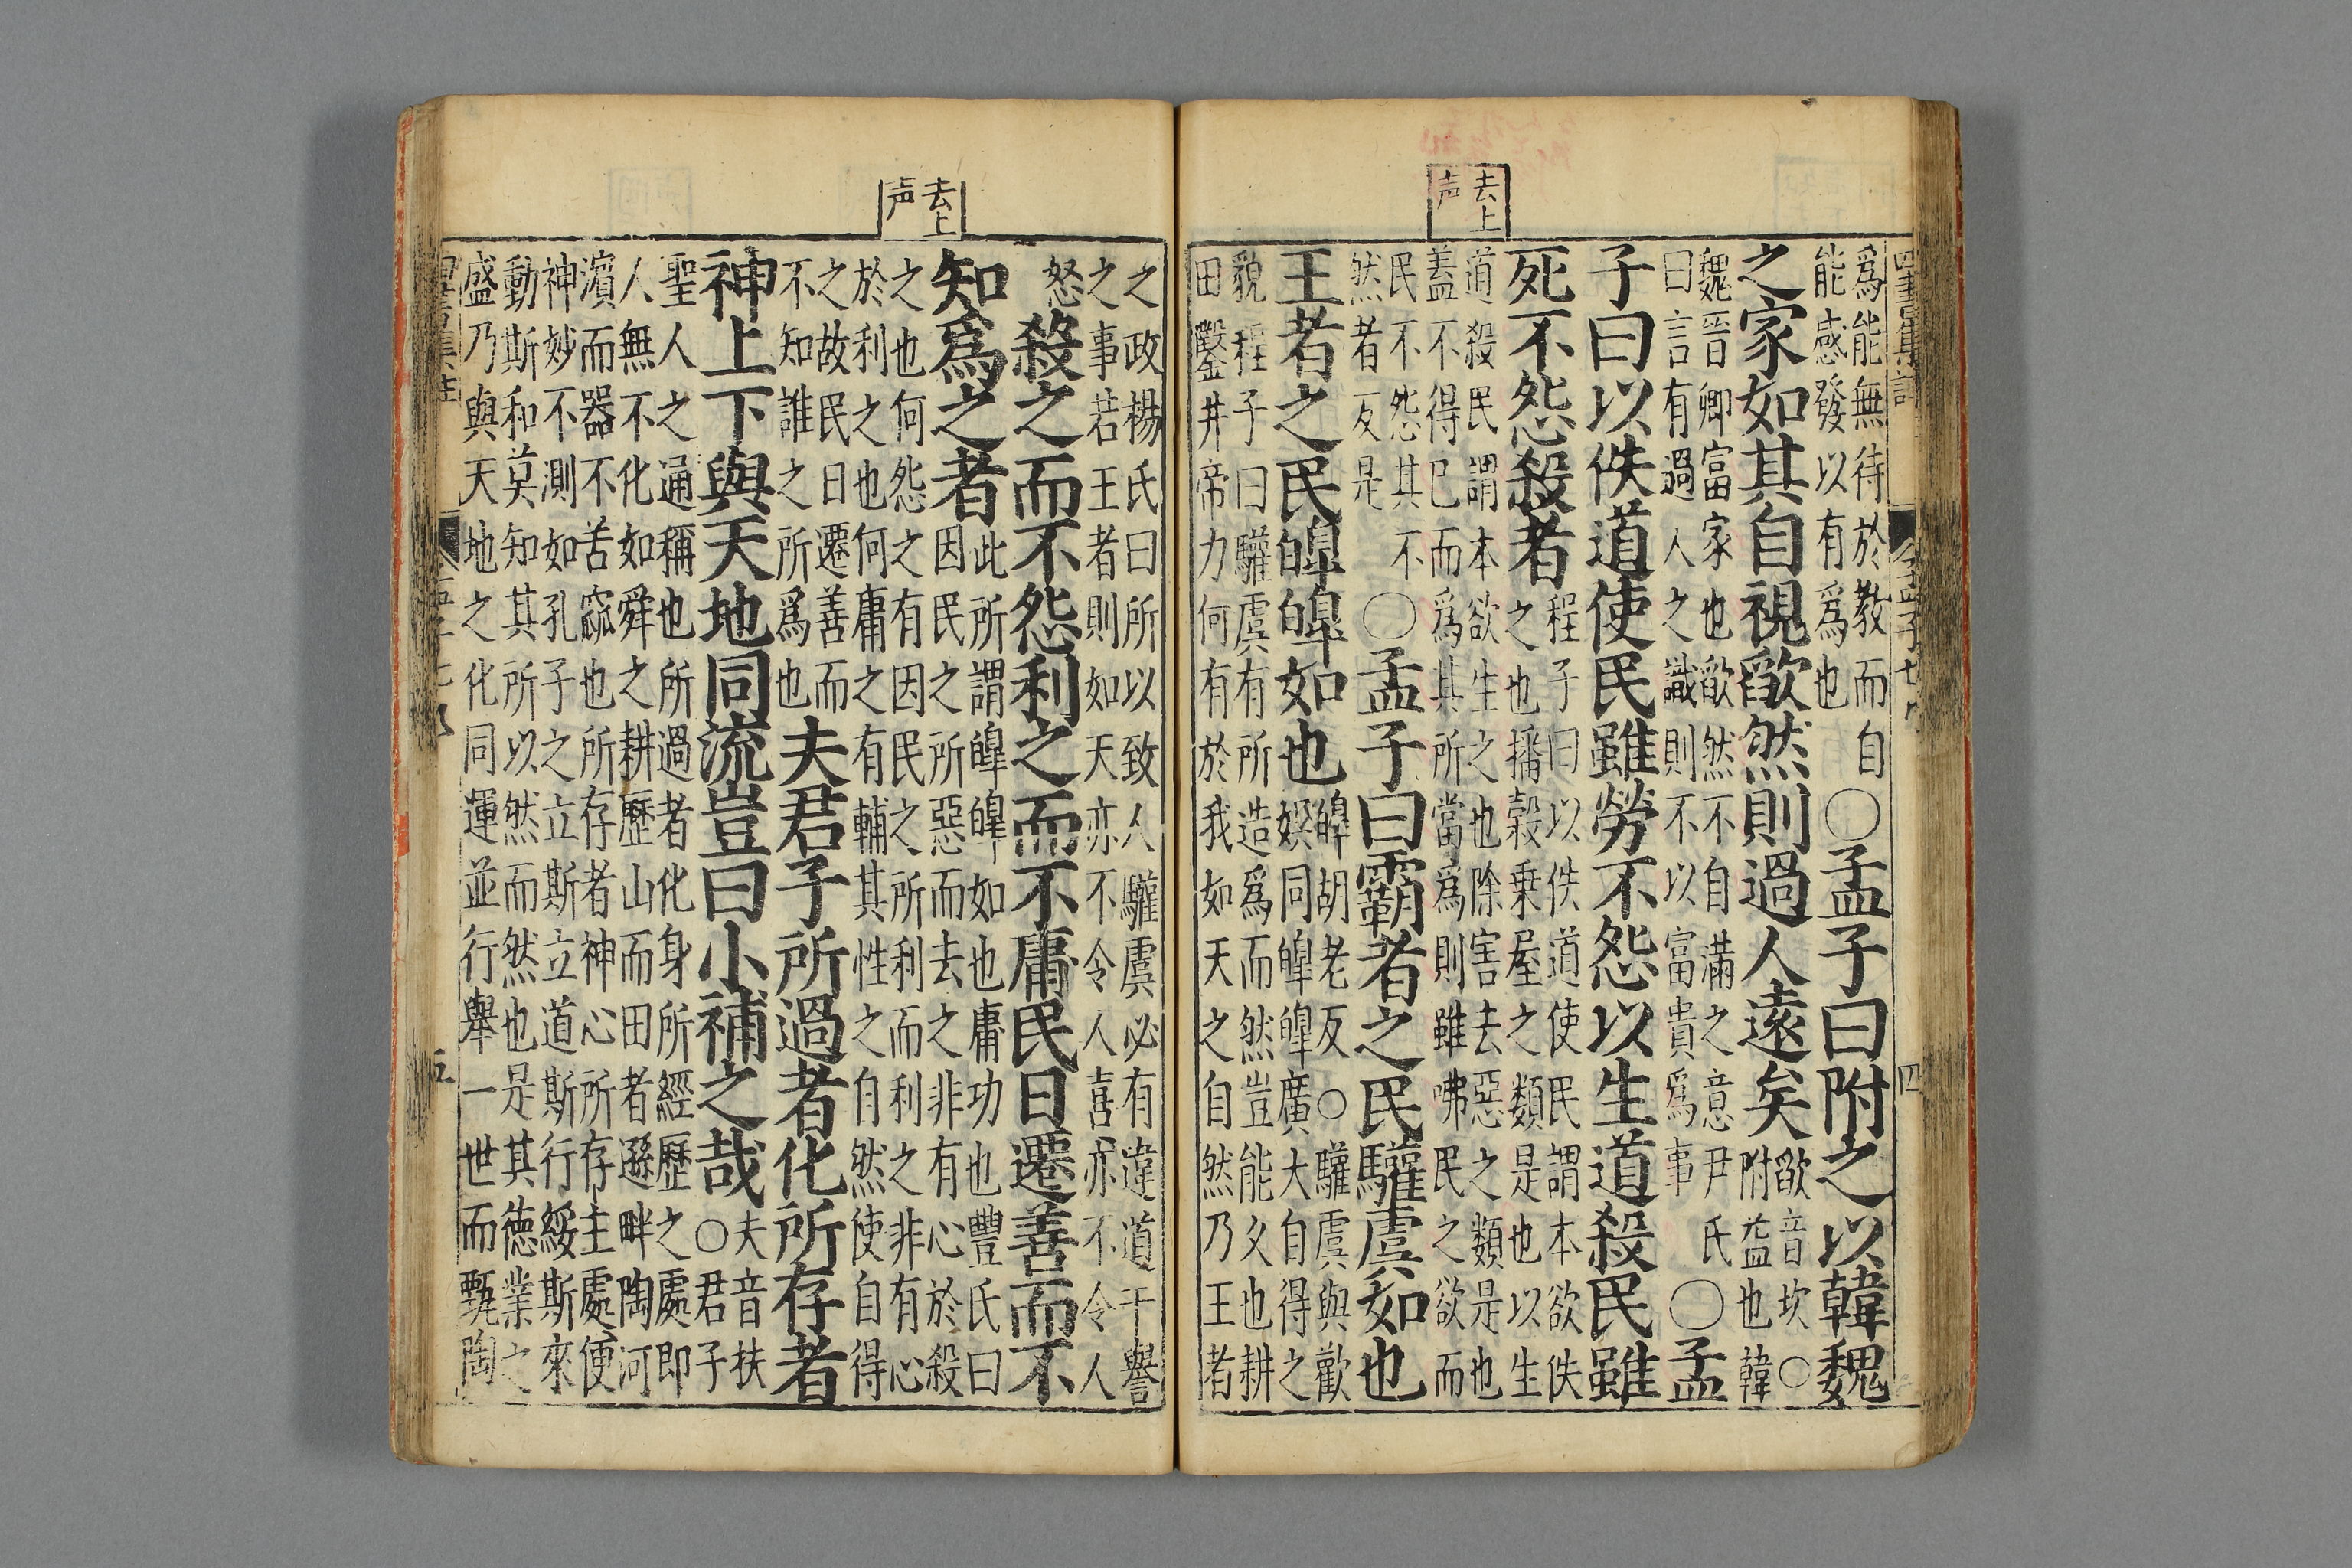 四書集註
孟子
四
去上
声
爲能無待於教而自
能感發以有爲也
○孟子曰附之以韓魏
之家如其自視欿然則過人遠矣
欿音坎○
附益也韓
魏晉卿富家也欿然不自滿之意尹氏
曰言有過人之識則不以富貴爲事
○孟
子曰以佚道使民雖勞不怨以生道殺民雖
死不怨殺者
程子曰以佚道使民謂本欲佚
之也播穀乗屋之類是也以生
道殺民謂本欲生之也除害去惡之類是也
蓋不得已而爲其所當爲則雖咈民之欲而
民不怨其不
然者反是
○孟子曰霸者之民驩虞如也
王者之民皥皥如也
皥胡老反○驩虞與歡
娛同皥皥廣大自得之
貌程子曰驩虞有所造爲而然豈能久也耕
田鑿井帝力何有於我如天之自然乃王者
去上
声
之政楊氏曰所以致人驩虞必有違道干譽
之事若王者則如天亦不令人喜亦不令人
怒
殺之而不怨利之而不庸民日遷善而不
知爲之者
此所謂皥皥如也庸功也豐氏曰
因民之所惡而去之非有心於殺
之也何怨之有因民之所利而利之非有心
於利之也何庸之有輔其性之自然使自得
之故民日遷善而
不知誰之所爲也
夫君子所過者化所存者
神上下與天地同流豈曰小補之哉
夫音扶
○君子
聖人之通稱也所過者化身所經歷之處即
人無不化如舜之耕歷山而田者遜畔陶河
濱而器不苦窳也所存者神心所存主處便
神妙不測如孔子之立斯立道斯行綏斯來
動斯和莫知其所以然而然也是其德業之
盛乃與天地之化同運並行舉一世而甄陶
五